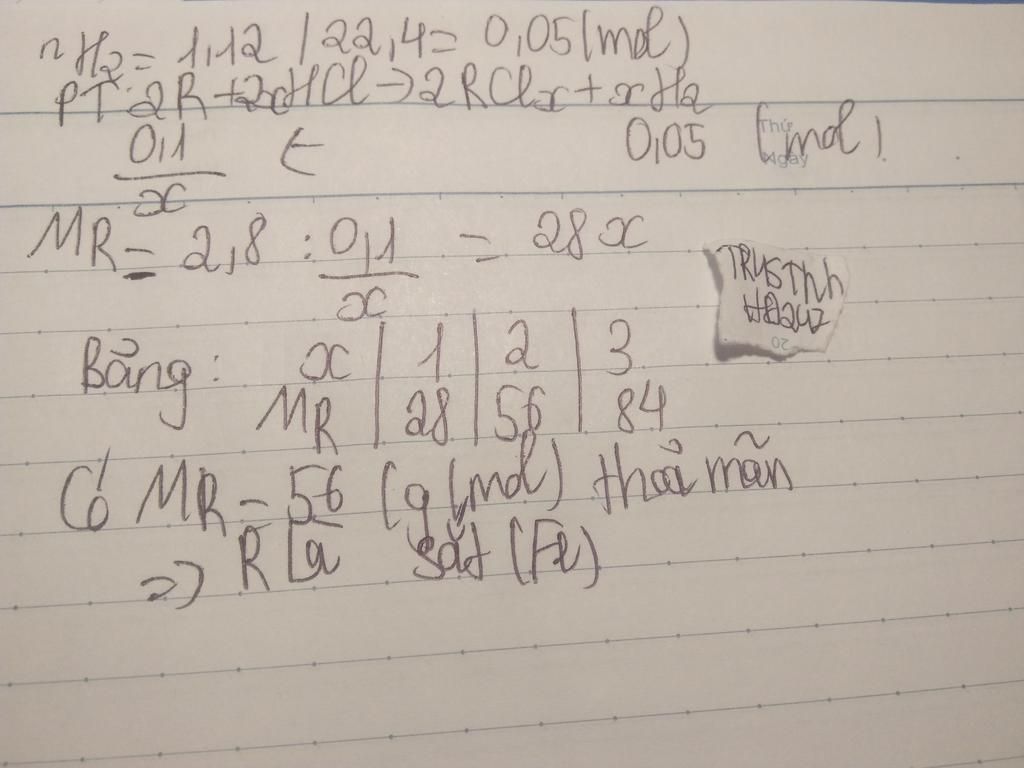 nH2 = 1,12 / 22,4 = 0,05 (mol)
PT: 2R + 2xHCl → 2RClx + xH2
0,1/x ← 0,05 (mol)
Thứ
Ngày
MR = 2,8 : 0,1/x = 28x
Bảng: x | 1 | 2 | 3
MR | 28 | 56 | 84
Có MR = 56 (g/mol) thoả mãn
=> R là sắt (Fe)
20